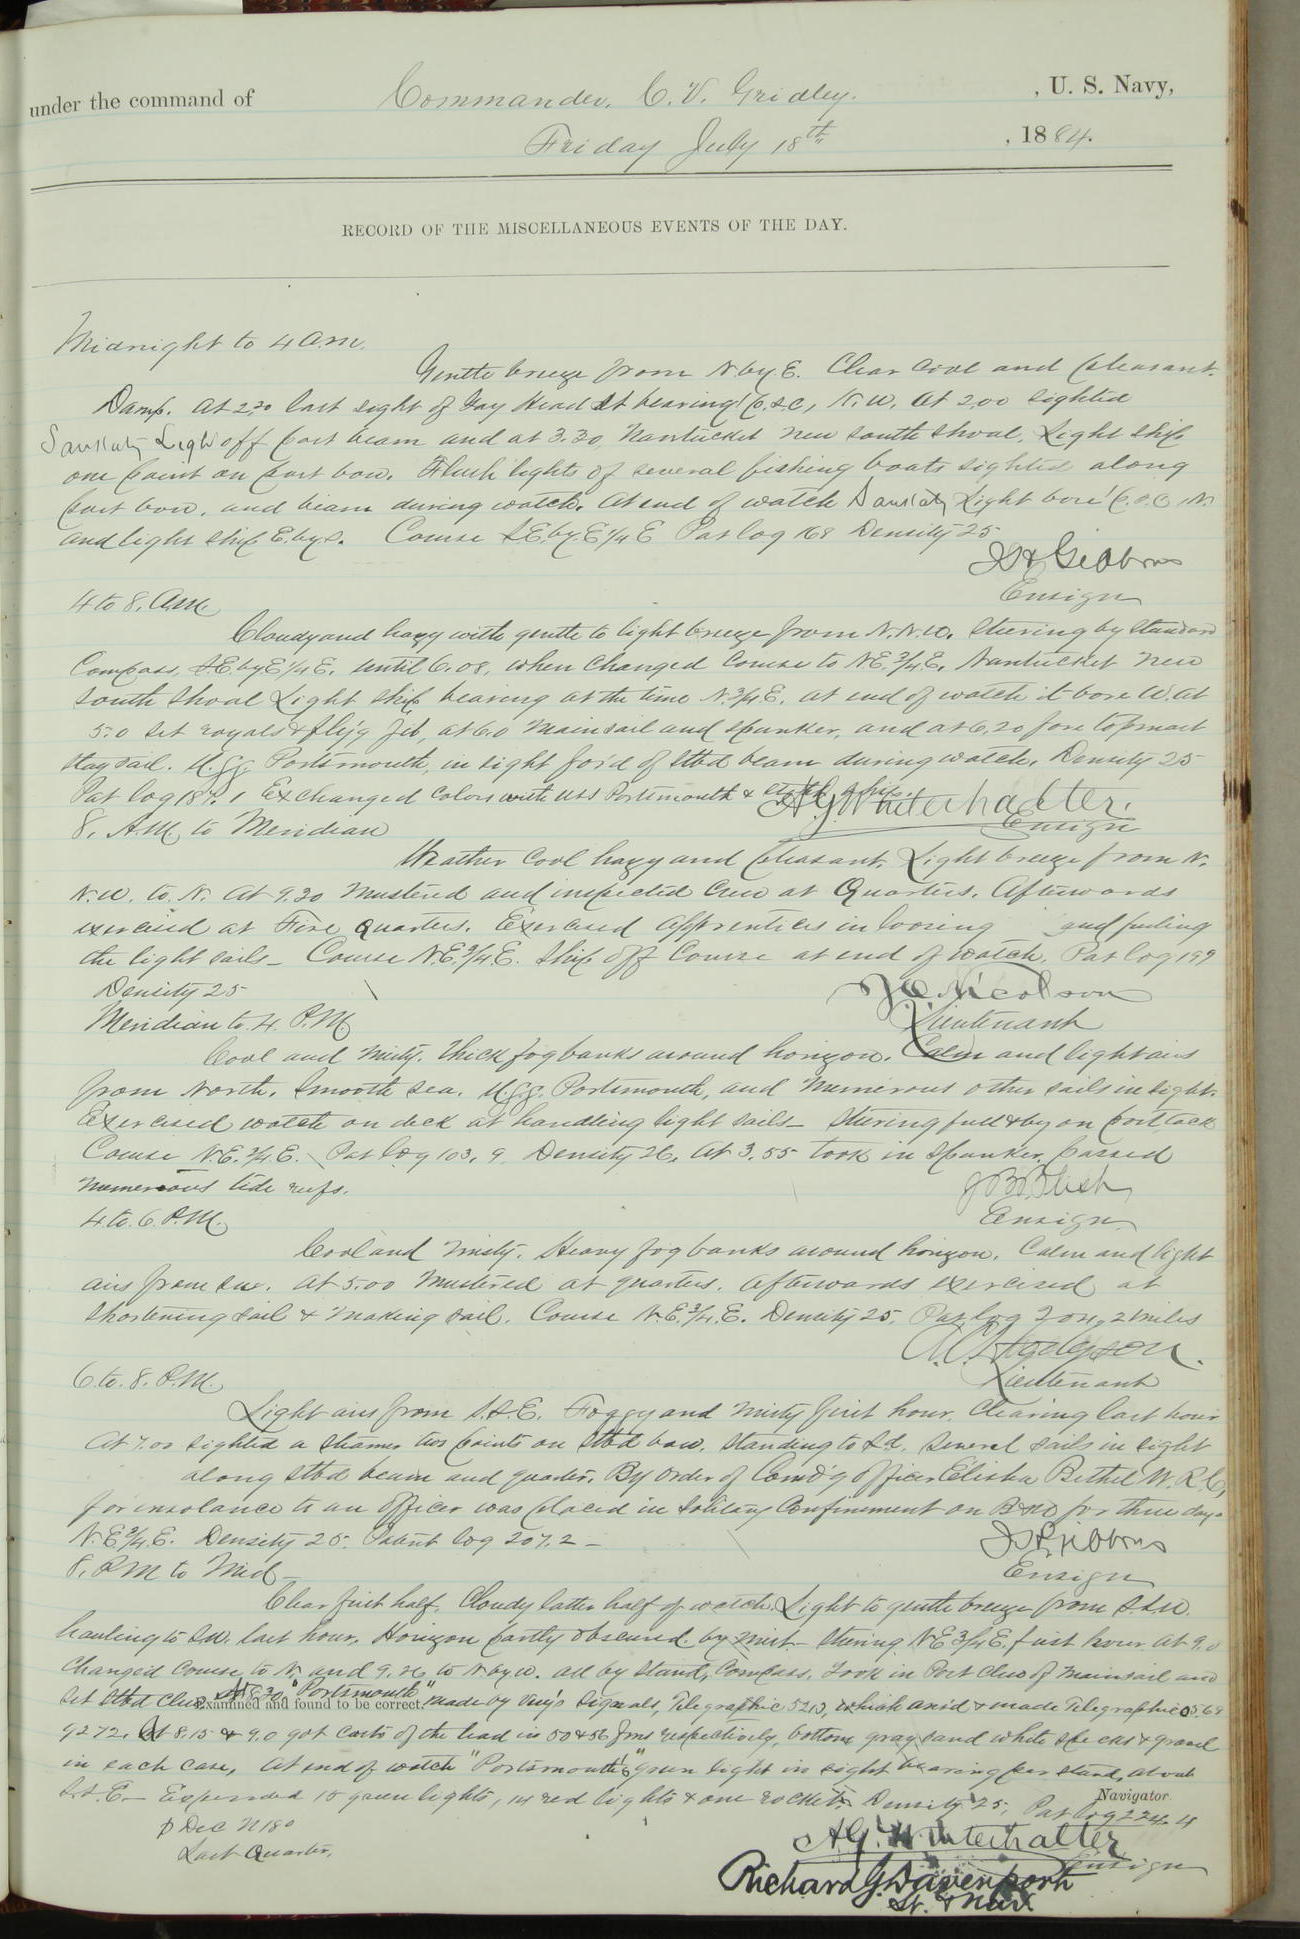 under the command of Commander C. V. Gridley. , U. S. Navy,
Friday July 18th , 1884.
RECORD OF THE MISCELLANEOUS EVENTS OF THE DAY.
Midnight to 4 a.m.
Gentle breeze from N. by E. Clear cool and pleasant.
Damp. At 2.30 lost sight of Gay Head Lt bearing p.s.c. N.W. At 2.00 sighted
Sankaty Light off port beam and at 3.30 Nantucket New South Shoal Light Ship
one point on port bow. Flash lights of several fishing boats sighted along
port bow, and beam during watch. At end of watch Sankaty Light bore p.s.c. N.
and light ship E. by S. Course S.E. by E 1/4 E Pat log 168 Density 25
Gibbons
Ensign
4 to 8. A.M.
Cloudy and hazy with gentle to light breeze from N.N.W. Steering by Standard
Compass, S.E. by E 1/4 E. until 6.08, when changed course to N.E. 3/4 E. Nantucket New
South Shoal Light Ship bearing at the time N. 3/4 E. at end of watch it bore W. At
5.0 set royals & fly'g jib, at 6.0 mainsail and spanker, and at 6.20 fore topmast
staysail. U.S.S. Portsmouth, in sight for'd of stbd beam during watch. Density 25
Pat log 187.1 Exchanged colors with USS Portsmouth &
A. G. Winterhalter.
Ensign
8. A.M. to Meridian
Weather cool hazy and pleasant. Light breeze from N.
N.W. to N. At 9.30 mustered and inspected crew at Quarters. Afterwards
exercised at Fire Quarters. Exercised apprentices in loosing and furling
the light sails – Course N.E. 3/4 E. Ship off Course at end of watch. Pat log 199
Density 25
Nicolson
Lieutenant
Meridian to 4 P.M.
Cool and misty. Thick fog banks around horizon. Calm and light airs
from North. Smooth sea. U.S.S. Portsmouth, and numerous other sails in sight.
Exercised watch on deck at handling light sails – Steering full & by on port tack
Course N.E. 3/4 E. Pat log 103.9 Density 26. At 3.55 took in Spanker. passed
numerous tide reefs.
J B Blish
Ensign
4 to 6 P.M.
Cool and misty. Heavy fog banks around horizon. Calm and light
airs from SW. At 5.00 mustered at quarters. Afterwards exercised at
shortening sail & making sail. Course N.E. 3/4 E. Density 25. Pat log 204.2 miles
Hodgson.
Lieutenant
6 to 8. P.M.
Light airs from S.S.E. Foggy and misty first hour. Clearing last hour
At 7.00 sighted a steamer two points on Stbd bow. Standing to Sd. Several sails in sight
along stbd beam and quarter. By order of Com'd'g officer Elisha Bethel W.R.C.
for insolence to an officer was placed in Solitary Confinement on B & W for three days.
N.E. 3/4 E. Density 25. Patent log 207.2 –
Gibbons
Ensign
8. P.M to Mid –
Clear first half, Cloudy latter half of watch. Light to gentle breeze from S.S.W.
hauling to SW. last hour. Horizon partly obscured by mist – Steering N.E. 3/4 E. first hour. At 9.0
changed course to N. and 9.26 to N by W. all by Stand. Compass. Took in Port Clew of mainsail and
set stbd clew. At 8.30 "Portsmouth" made by Very's signals, Telegraphic 5213, which ans'd & made Telegraphic 0568
Examined and found to be correct.
9272. At 8.15 & 9.0 got casts of the lead in 50 & 56 fms respectively, bottom gray sand white specks & gravel
in each case. At end of watch "Portsmouth's" green light in sight bearing per stand. about
S.S.E. – Expended 15 green lights, 14 red lights & one rocket. Density 25, Pat log 224.4
Navigator.
Dec N 18°
Last Quarter.
A. G. Winterhalter
Ensign
Richard G. Davenport
Lt. & Nav.